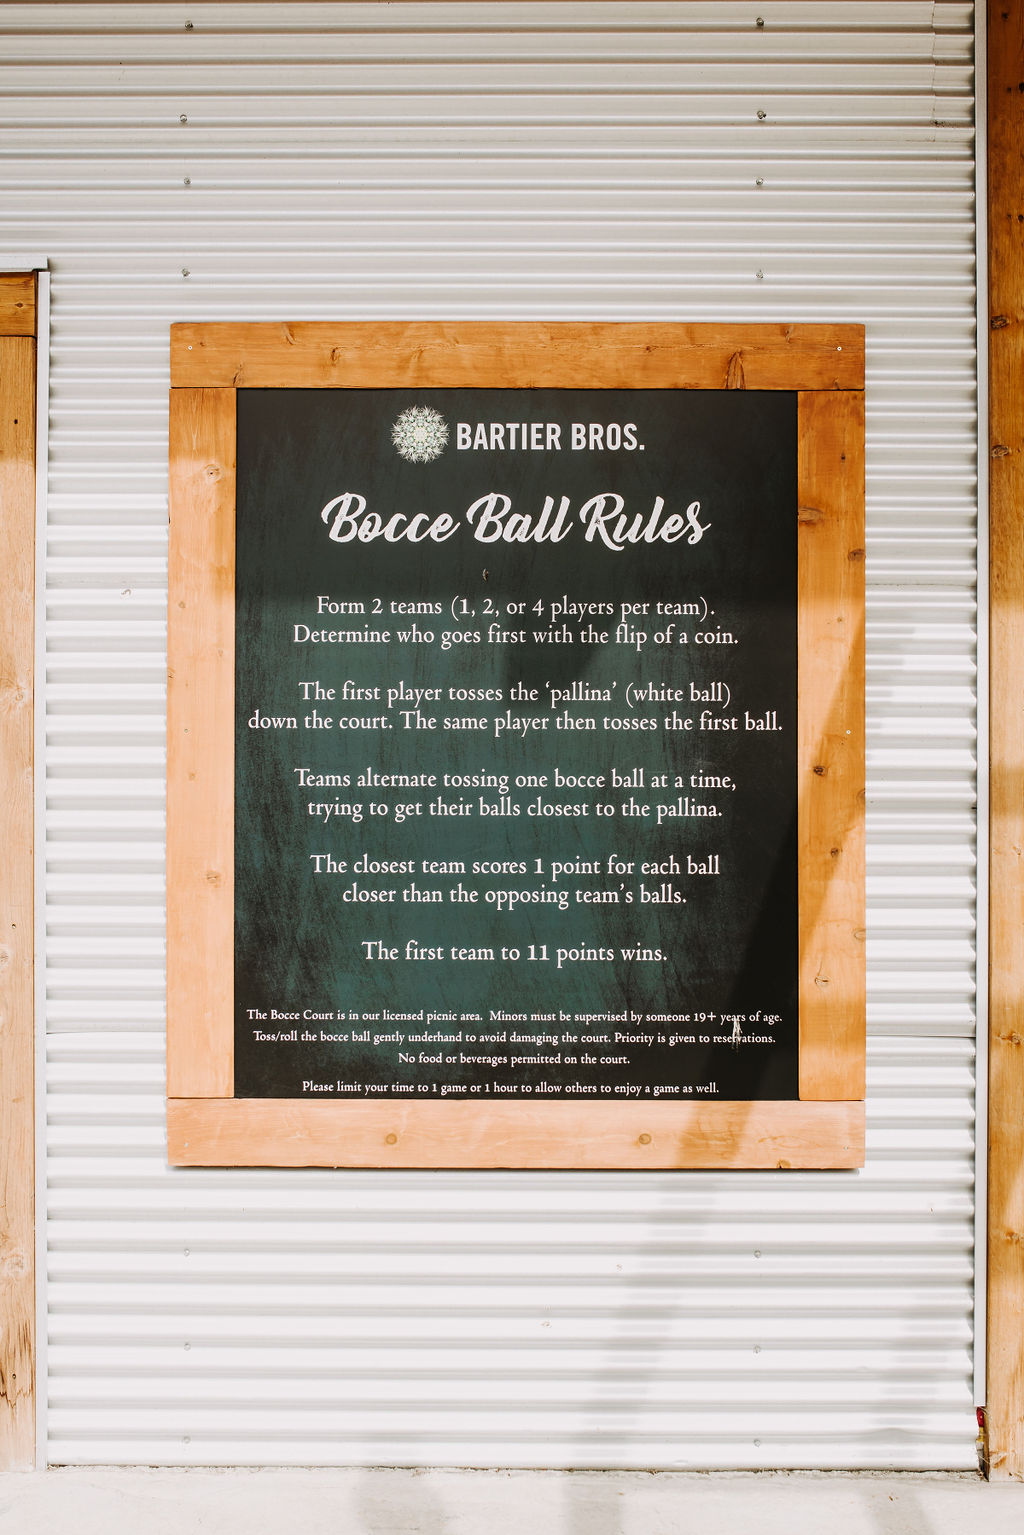 BARTIER BROS.
Bocce Ball Rules
Form 2 teams (1, 2, or 4 players per team).
Determine who goes first with the flip of a coin.
The first player tosses the ‘pallina’ (white ball)
down the court. The same player then tosses the first ball.
Teams alternate tossing one bocce ball at a time,
trying to get their balls closest to the pallina.
The closest team scores 1 point for each ball
closer than the opposing team’s balls.
The first team to 11 points wins.
The Bocce Court is in our licensed picnic area. Minors must be supervised by someone 19+ years of age.
Toss/roll the bocce ball gently underhand to avoid damaging the court. Priority is given to reservations.
No food or beverages permitted on the court.
Please limit your time to 1 game or 1 hour to allow others to enjoy a game as well.